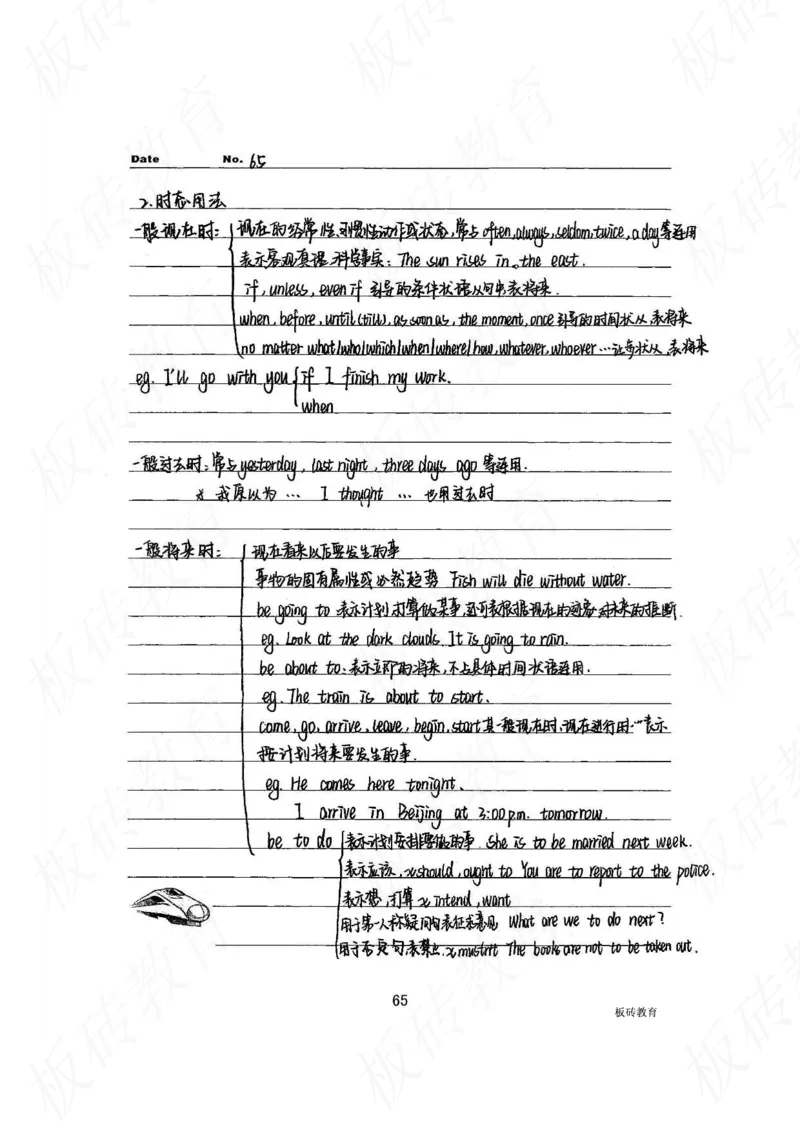 Date No. 65
2.时态用法
一般现在时: 现在的经常性、习惯性动作或状态,常与often,always,seldom,twice,a day等连用
表示客观真理、科学事实: The sun rises in the east.
if,unless,even if 引导的条件状语从句中表将来.
when,before,until(till),as soon as,the moment,once引导的时间状从 表将来
no matter what/who/which/when/where/how,whatever,whoever…让步状从 表将来
eg. I'll go with you if I finish my work.
when
一般过去时: 常与yesterday, last night, three days ago 等连用.
* 我原以为… I thought … 也用过去时
一般将来时: 现在看来以后要发生的事
事物的固有属性或必然趋势 Fish will die without water.
be going to 表示计划打算做某事 还可表根据现在的迹象对未来的推断.
eg. Look at the dark clouds. It is going to rain.
be about to: 表示立即的将来,不与具体时间状语连用.
eg. The train is about to start.
come,go,arrive,leave,begin,start其一般现在时、现在进行时…表示
按计划将来要发生的事.
eg. He comes here tonight.
I arrive in Beijing at 3:00 p.m. tomorrow.
be to do 表示计划安排要做的事. She is to be married next week.
表示应该, should,ought to You are to report to the police.
表示想,打算 intend,want
用于第一人称疑问句表征求意见 What are we to do next?
用于否定句表禁止 mustn't The books are not to be taken out.
65
板砖教育